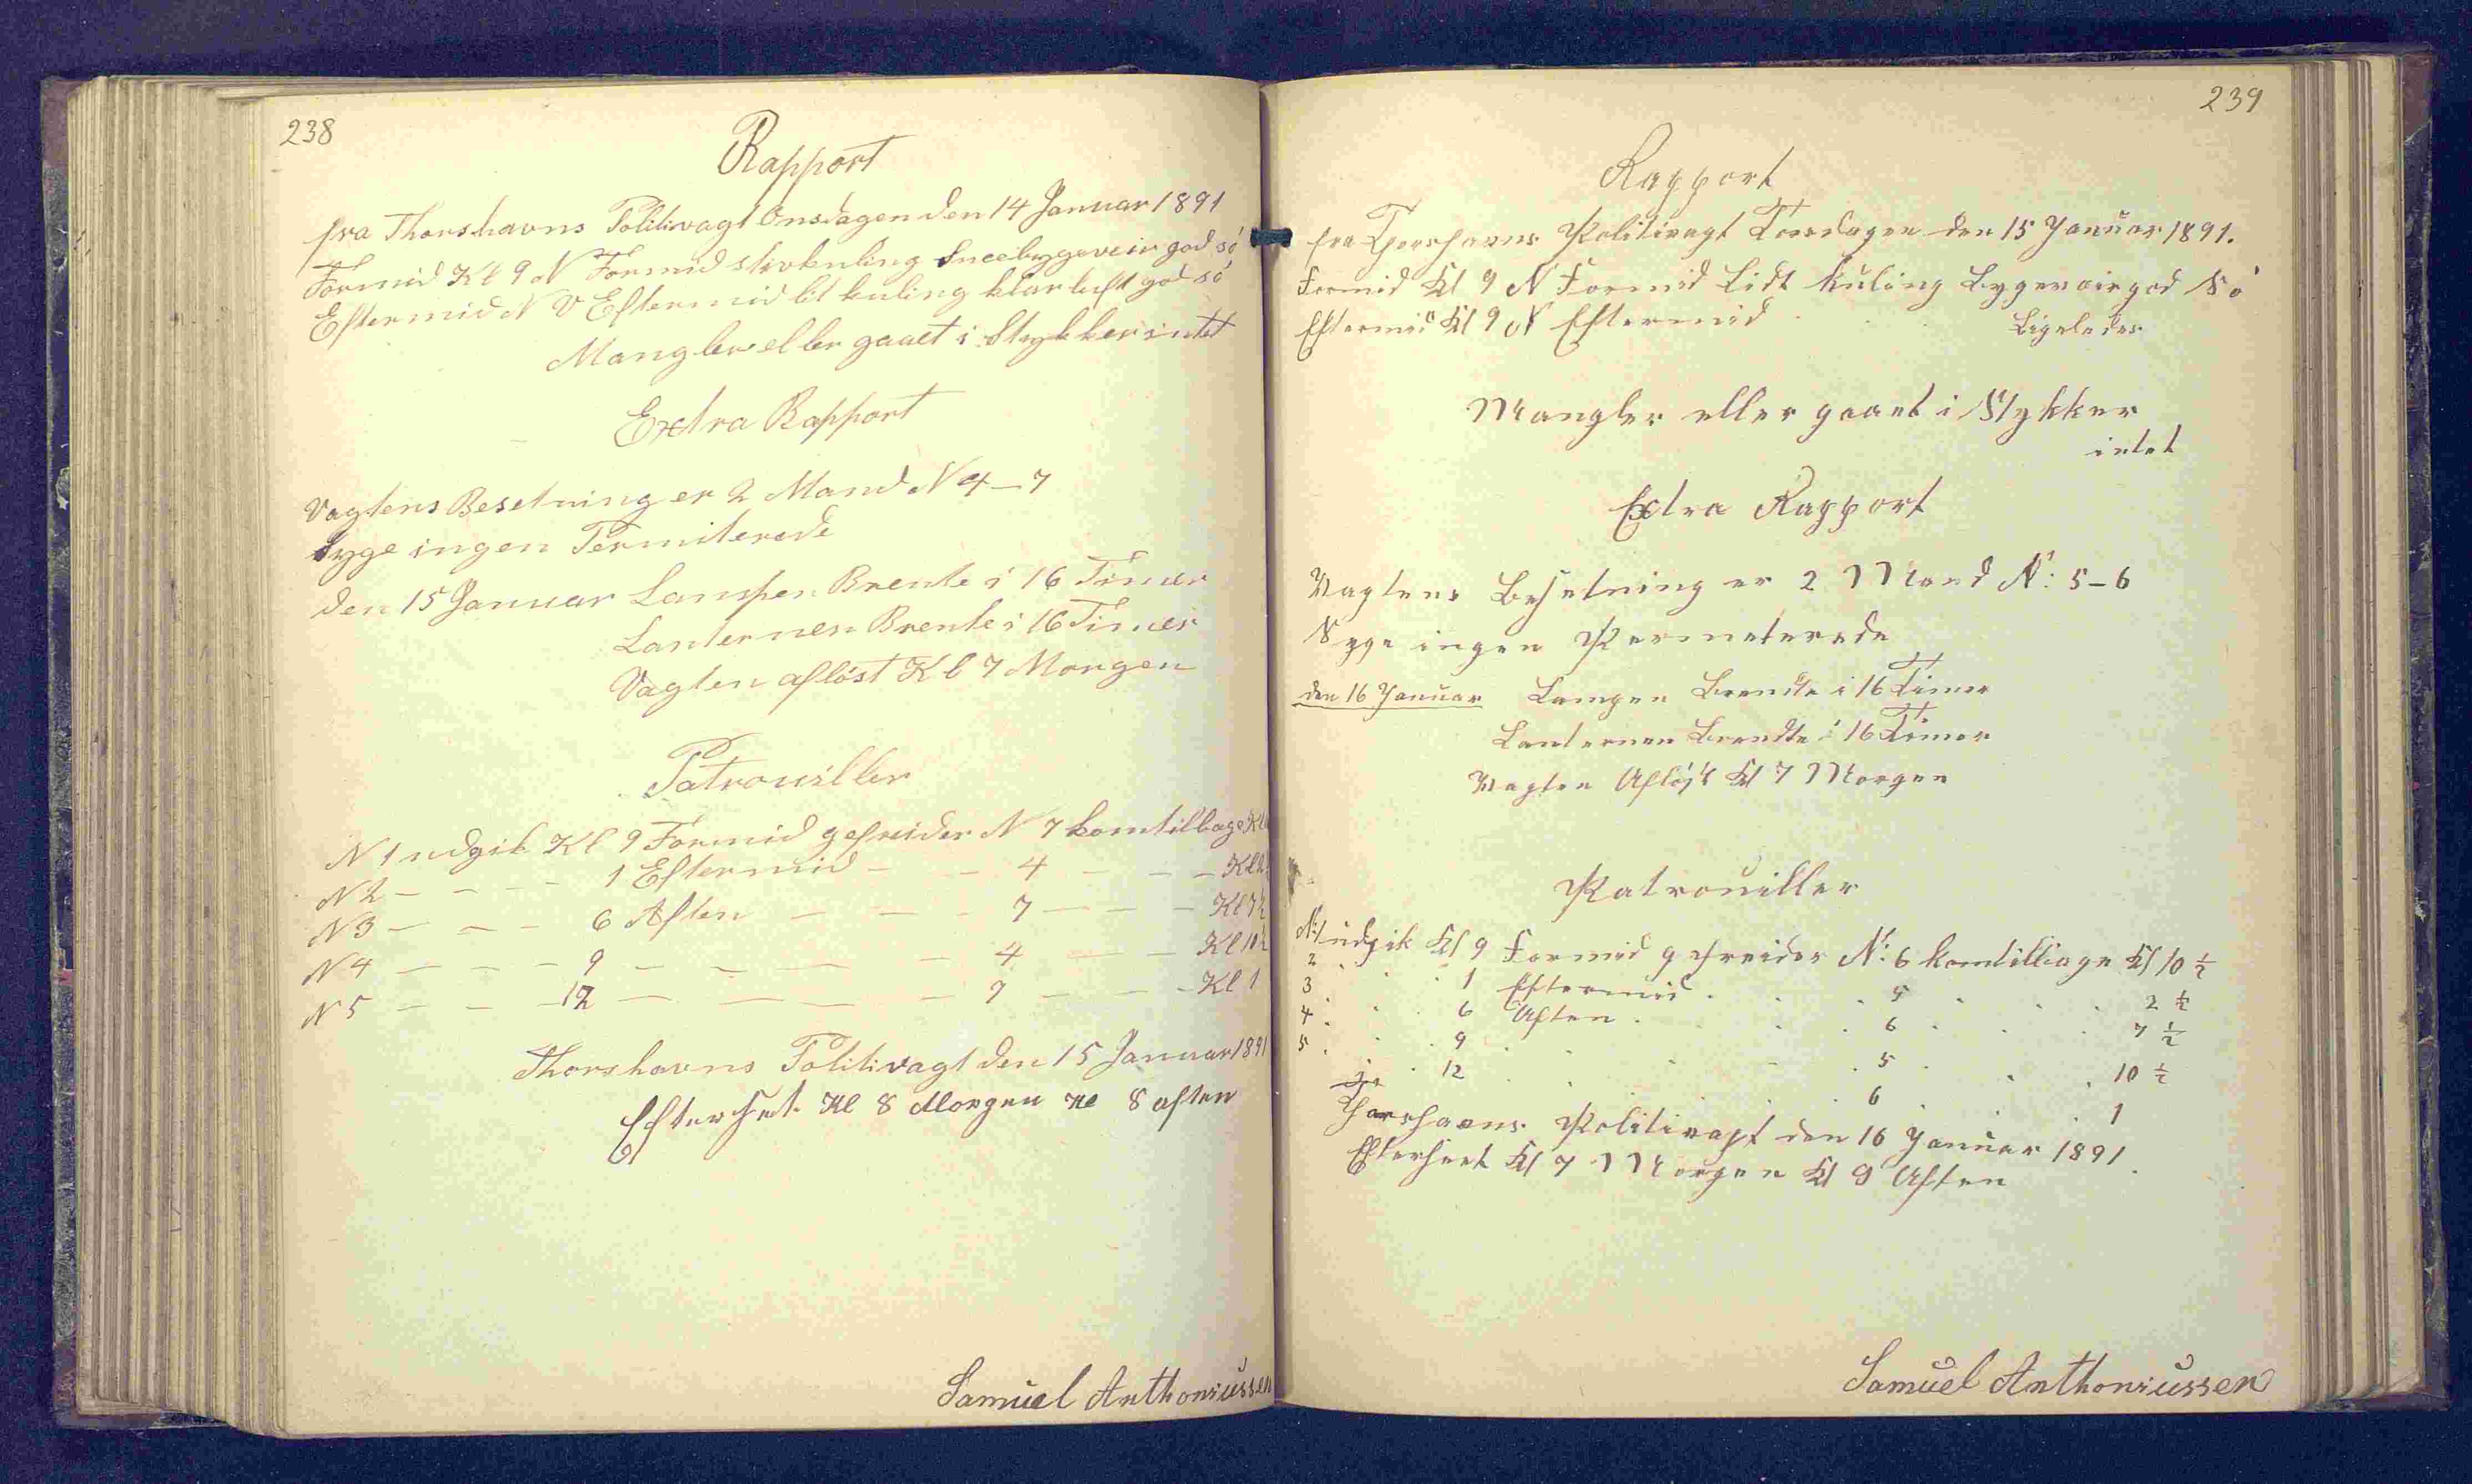 238
Rapport
fra Thorshavns Politivagt Onsdagen den 14 Januar 1891
Formid Kl 9 N Formid stivkuling Sneebygeveir god só
Eftermid N V Eftermid lit kuling klar luft god só
Mangler eller gaaet i Stykker intet
Extra Rapport
Vagtens Besetning er 2 Mand N 4 – 7
Syge ingen Permiterede
den 15 Januar Lampen Brente i 16 Timer
Lanternen Brente i 16 Timer
Vagten aflóst Kl 7 Morgen
Patrouiller
N 1 udgik Kl 9 Formid gefreider N 7 kom tilbage Kl
N 2 – – – – 1 Eftermid – – 4 – – – Kl 2
N 3 – – – 6 Aften – – – 7 – – – Kl 7½
N 4 – – – – 9 – – – – 4 – – Kl 10½
N 5 – – – 12 – – – – 7 – – – Kl 1
Thorshavns Politivagt den 15 Januar 1891
Efterset Kl 8 Morgen Kl 8 aften
Samuel Anthoniussen
239
Rapport
fra Thorshavns Politivagt Torsdagen den 15 Januar 1891.
Formid Kl 9 N Formid Lidt Kuling Bygeveir god Só
Eftermid Kl 9 N Eftermid Ligeledes
Mangler eller gaaet i Stykker
intet
Extra Rapport
Vagtens Besetning er 2 Mand N: 5 – 6
Syge ingen Permeterede
den 16 Januar Lampen Brendte i 16 Timer
Lanternen Brendte i 16 Timer
Vagten Aflóst Kl 7 Morgen
Patrouiller
N: 1 udgik Kl 9 Formid gefreider N: 6 kom tilbage Kl 10 ½
2 . . . 1 Eftermid . . . 5 . . . 2 ½
3 . . . 6 Aften . . . 6 . . . 7 ½
4 . . . 9 . . . 5 . . . 10 ½
5 . . . 12 . . . 6 . . . 1
Thorshavns Politivagt den 16 Januar 1891.
Efterseet Kl 7 Morgen Kl 9 Aften
Samuel Anthoniussen